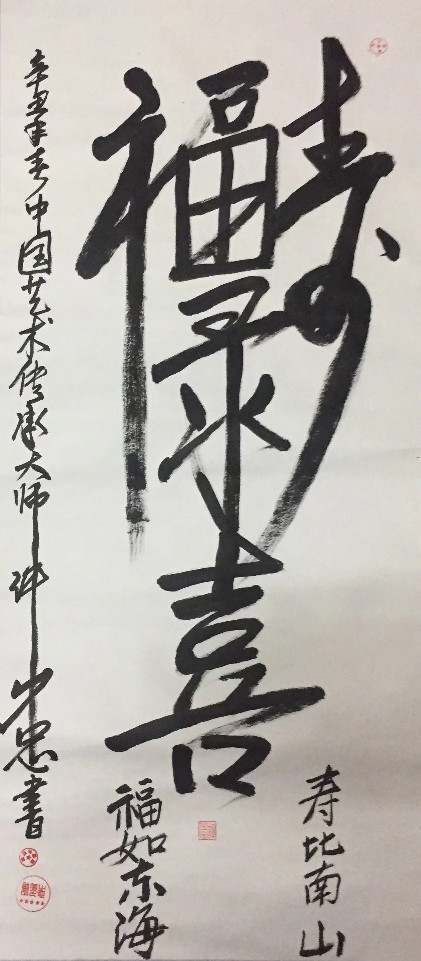 福禄寿喜
寿比南山
福如东海
辛丑年春中国艺术传承大师许少忠书